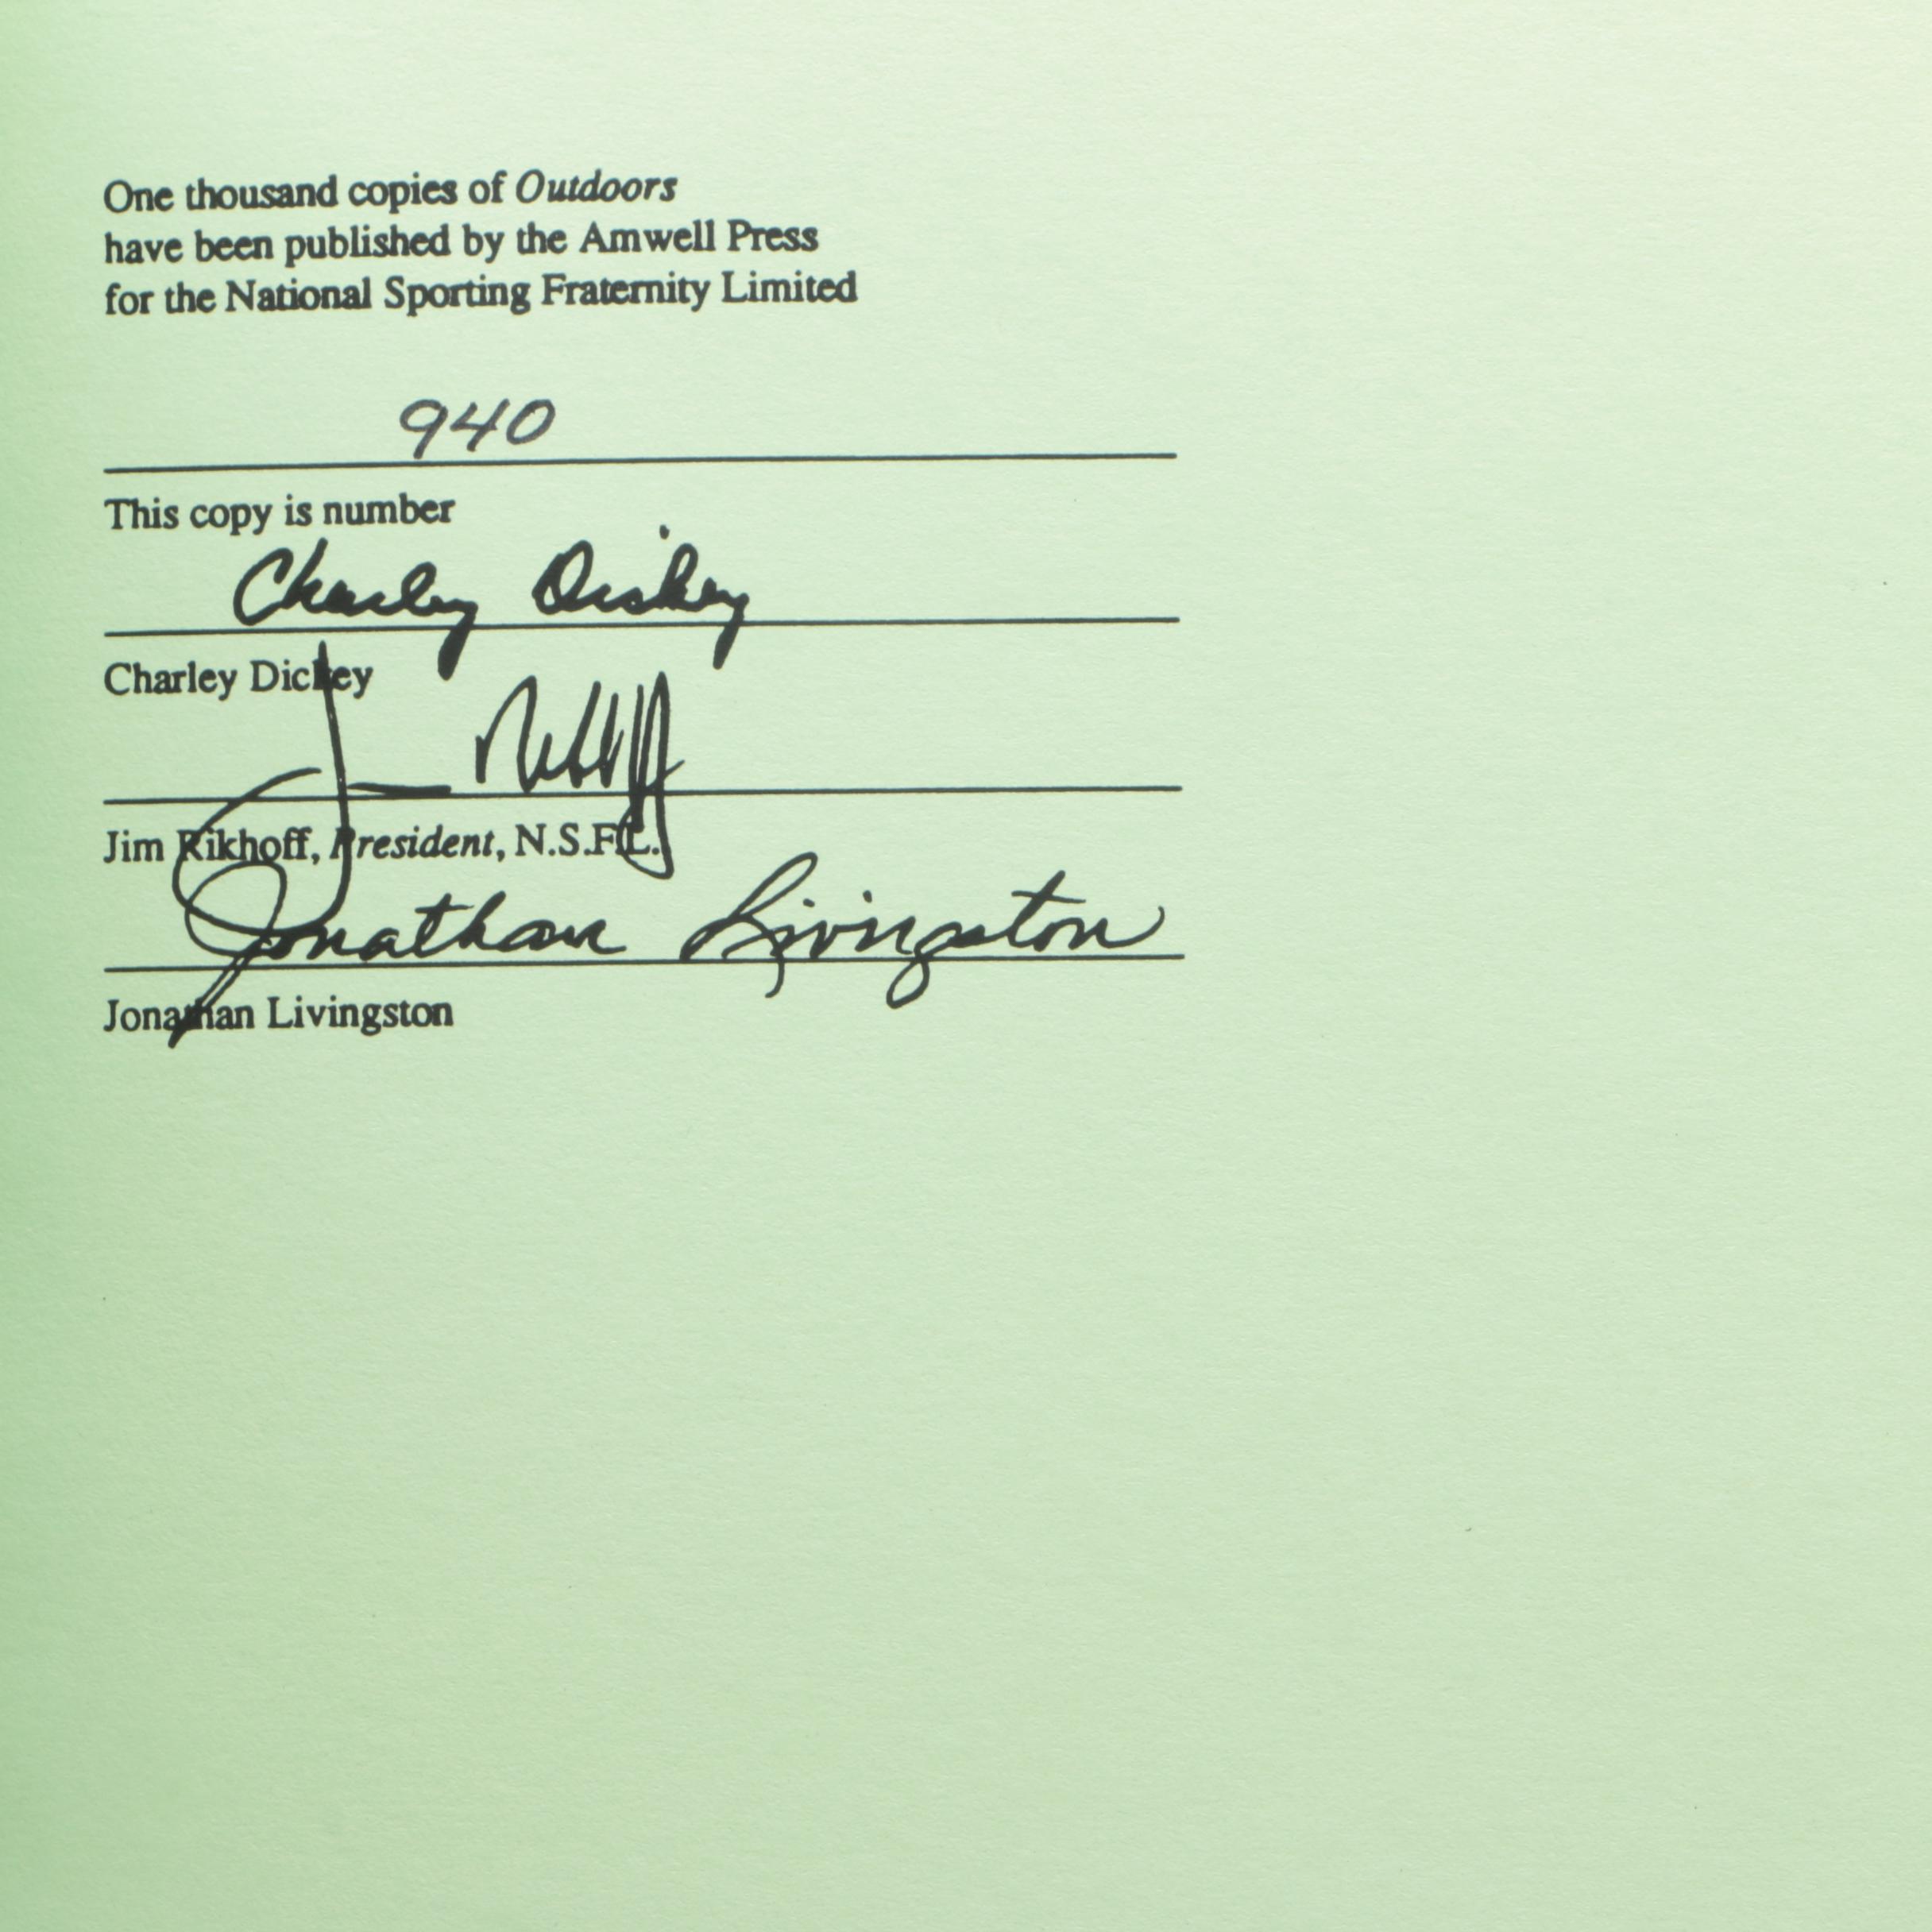 One thousand copies of Outdoors
have been published by the Amwell Press
for the National Sporting Fraternity Limited
940
This copy is number
Charley Dickey
Charley Dickey
Jim Rikhoff
Jim Rikhoff, President, N.S.F.L.
Jonathan Livingston
Jonathan Livingston